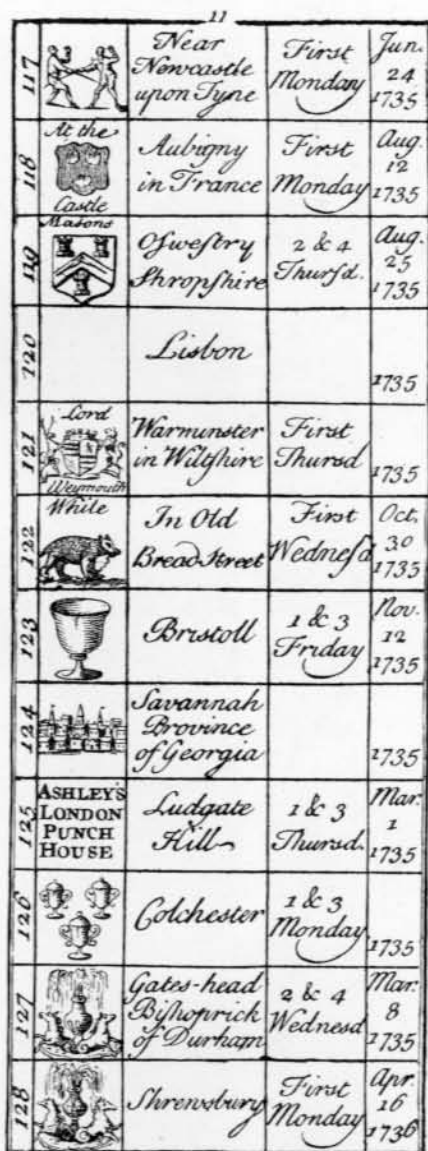 11
117
Near
Newcastle
upon Tyne
First
Monday
Jun.
24
1735
118
At the
Castle
Aubigny
in France
First
Monday
Aug.
12
1735
119
Masons
Oſweſtry
Shropſhire
2 & 4
Thurſd.
Aug.
25
1735
120
Lisbon
1735
121
Lord
Weymouth
Warminster
in Wiltſhire
First
Thursd
1735
122
While
In Old
Bread Street
First
Wedneſd
Oct.
30
1735
123
Bristoll
1 & 3
Friday
Nov.
12
1735
124
Savannah
Province
of Georgia
1735
125
ASHLEY'S
LONDON
PUNCH
HOUSE
Ludgate
Hill
1 & 3
Thursd.
Mar.
1
1735
126
Colchester
1 & 3
Monday
1735
127
Gates-head
Biſhoprick
of Durham
2 & 4
Wednesd
Mar.
8
1735
128
Shrewsbury
First
Monday
Apr.
16
1736